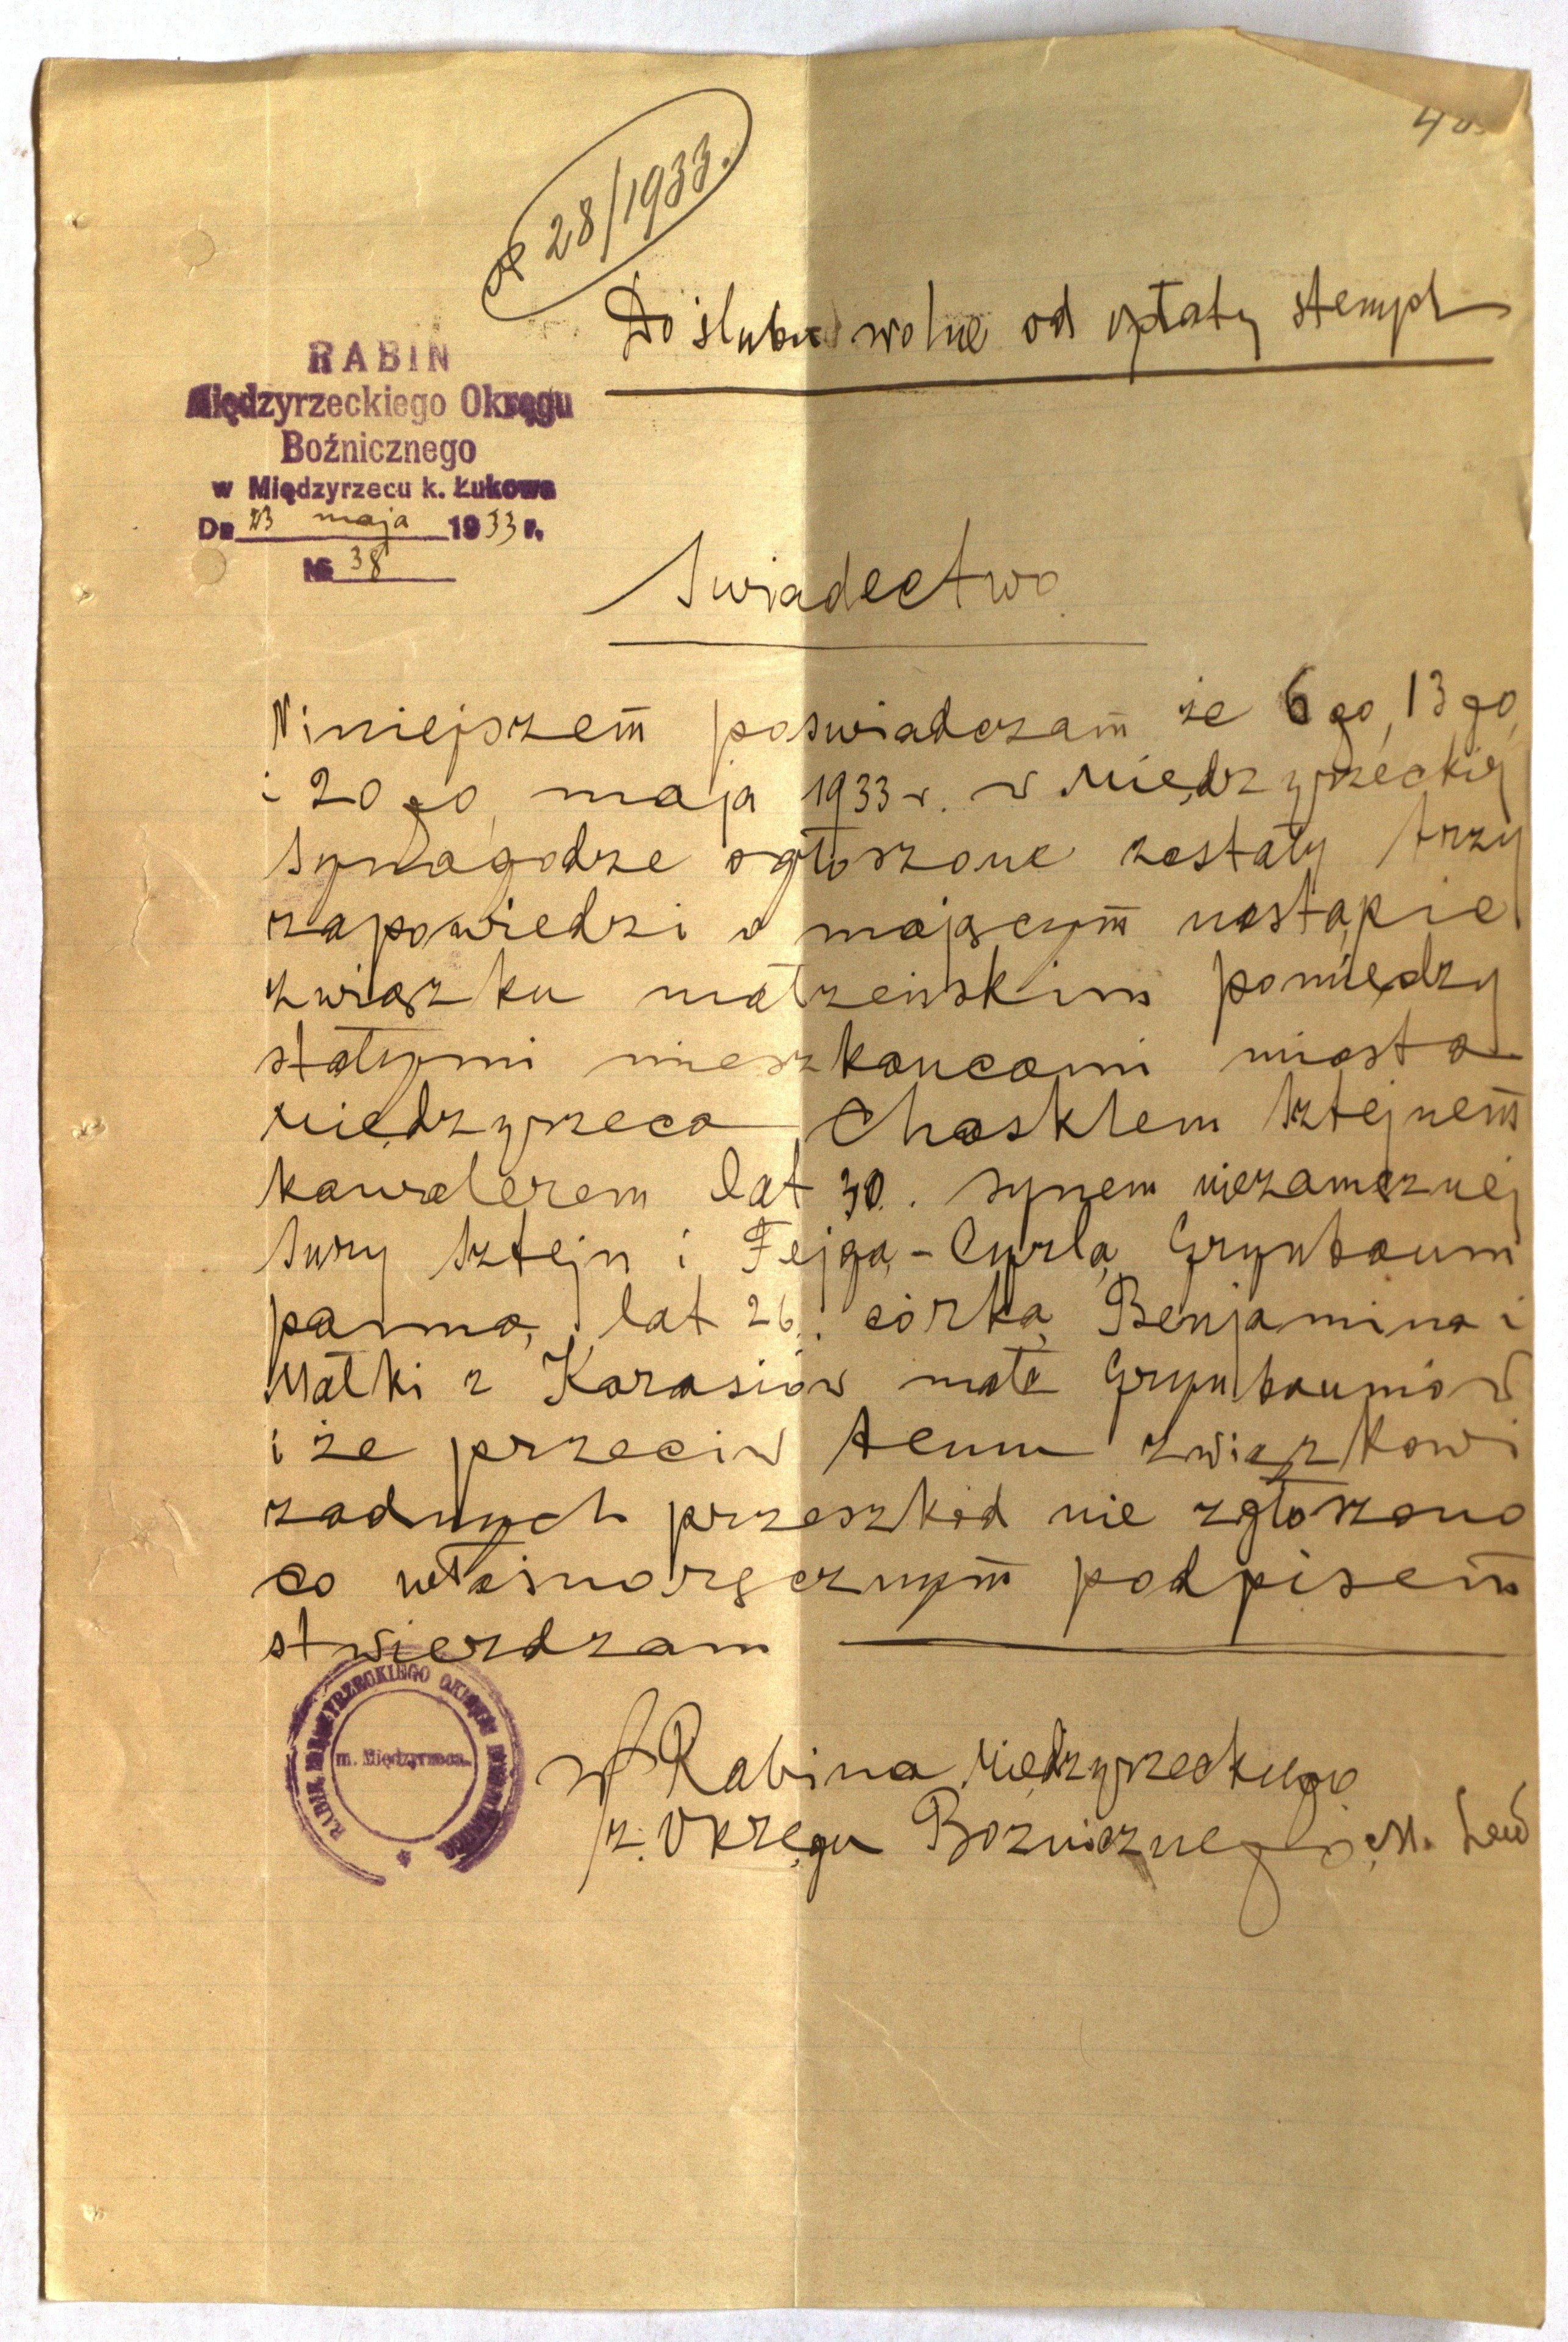 28/1933.
Do ślubu wolne od opłaty stempl
RABIN
Międzyrzeckiego Okręgu
Bożnicznego
w Międzyrzecu k. Łukowa
Dn 23 maja 1933 r.
№ 38
Swiadectwo
Niniejszem poswiadczam że 6go, 13go,
i 20go maja 1933 r. w Międzyrzeckiej
Synagodze ogłoszone zostały trzy
zapowiedzi o mającym nastąpić
związku małżeńskim pomiędzy
stałymi mieszkańcami miasta
Międzyrzeca Chasklem Sztejnem
kawalerem lat 30. synem niezamężnej
Sury Sztejn i Fejgą-Cyrlą Grynbaum
panną, lat 26. córką Benjamina i
Małki z Karasiów małż Grynbaumów
i że przeciw temu związkowi
żadnych przeszkód nie zgłoszono
co własnoręcznym podpisem
stwierdzam
RABIN MIĘDZYRZECKIEGO OKRĘGU BOŻNICZNEGO
m. Międzyrzeca.
Rabina Międzyrzeckiego
Okręgu Boznicznego M. Lew